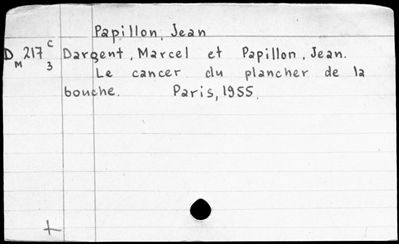 Papillon, Jean
D M 217 C 3 Dargent, Marcel et Papillon, Jean.
Le cancer du plancher de la
bouche. Paris, 1955.
+